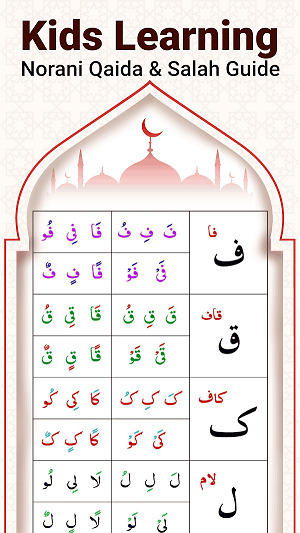 Kids Learning
Norani Qaida & Salah Guide
فا
ف
فَ فِ فُ
فَا فِى فُو
فَىْ فَوْ
فًا فٍ فٌ
قاف
ق
قَ قِ قُ
قَا قِى قُو
قَىْ قَوْ
قًا قٍ قٌ
كاف
ک
کَ کِ کُ
کَا کِى کُو
کَىْ کَوْ
کًا کٍ کٌ
لام
ل
لَ لِ لُ
لَا لِى لُو
لَىْ لَوْ
لًا لٍ لٌ